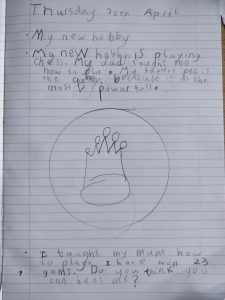 Thursday 30th April
My new hobby
My new hobby is playing
chess. My dad taught me
how to play. My favorit pec is
the queen because it is the
most powurfull.
I taught my mum how
to playe. I have won 23
gams. Do you think you
can beat me?